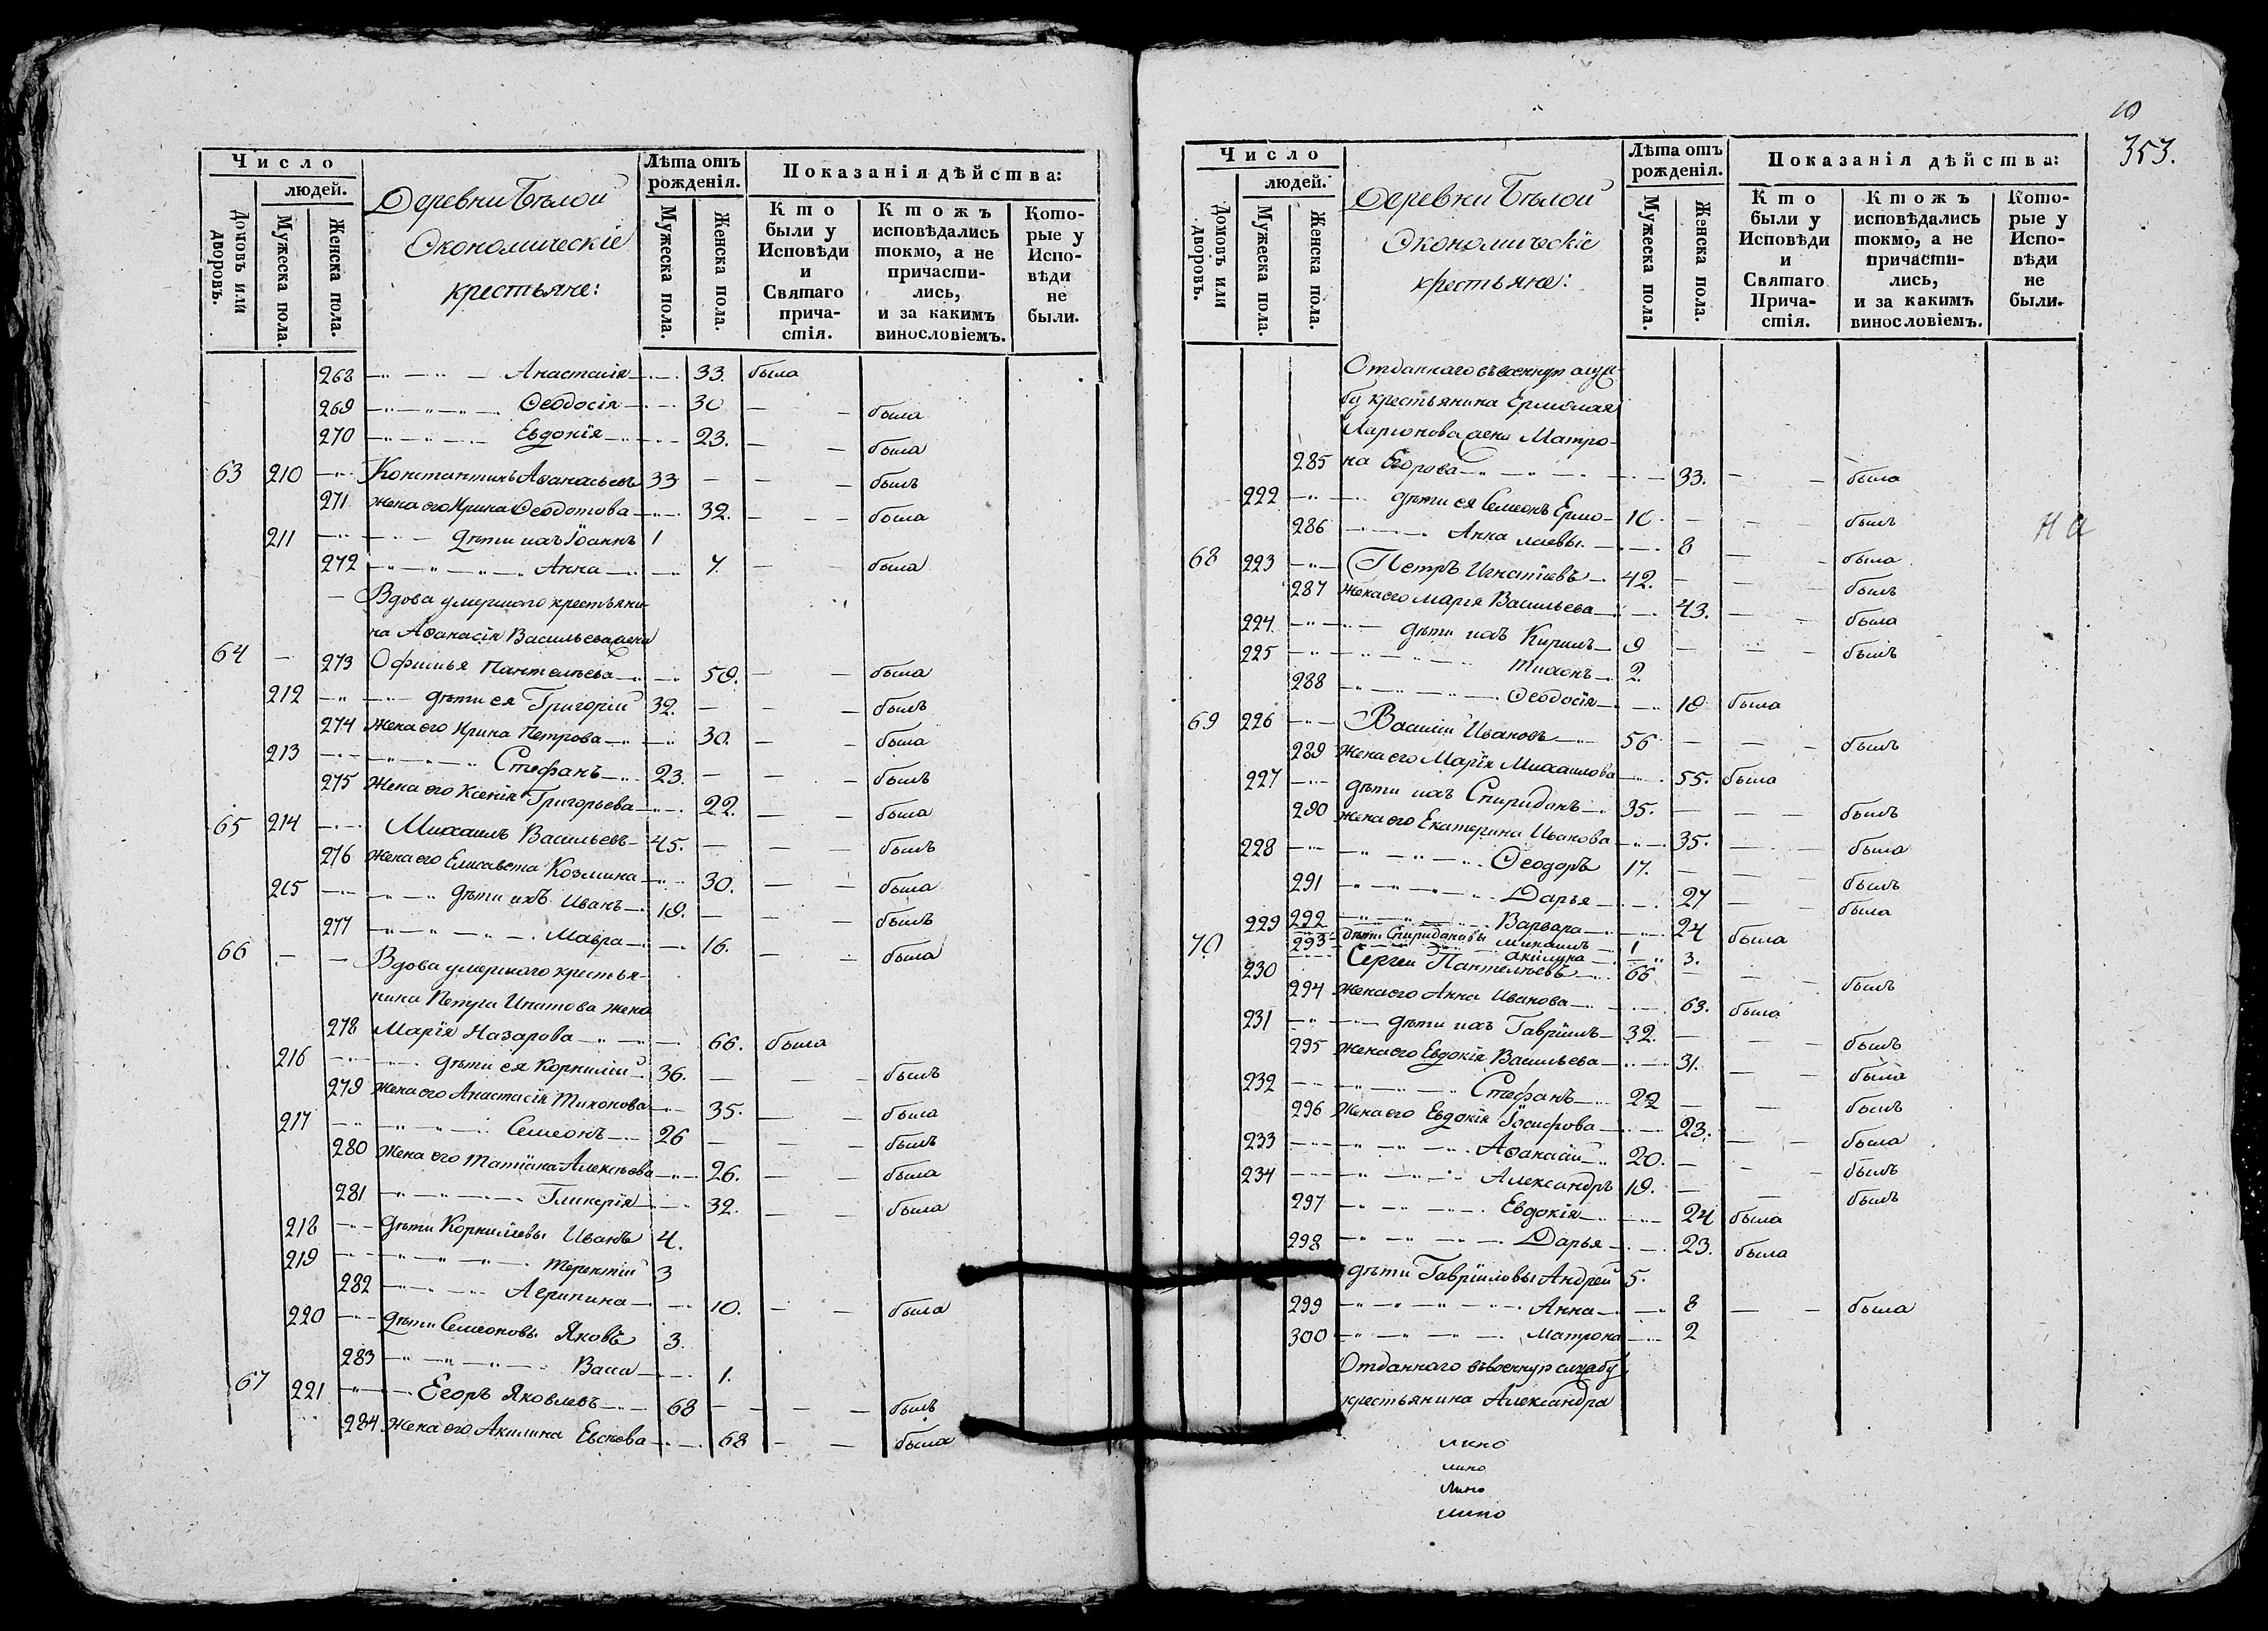 Число
людей.
Домовъ или дворовъ.
Мужеска пола.
Женска пола.
Деревни Бѣлой
Экономическіе
крестьяне:
Лѣта отъ рожденія.
Мужеска пола.
Женска пола.
Показанія дѣйства:
Кто были у Исповѣди и Святаго причастія.
Ктожъ исповѣдались токмо, а не причастились, и за какимъ винословіемъ.
Которые у Исповѣди не были.
268 Анастасія 33. была
269 Ѳеодосія 30 была
270 Евдокія 23. была
63 210 Константинъ Аѳанасьевъ 33 былъ
271 жена его Ирина Ѳеодотова 32. была
211 дѣти ихъ Іоаннъ 1
272 Анна 7. была
Вдова умершаго крестьяни-
на Аѳанасія Васильева жена
64 273 Офимья Пантелѣева 59. была
212 дѣти ея Григорій 32. былъ
274 жена его Ирина Петрова 30. была
213 Стефанъ 23. былъ
275 Жена его Ксенія Григорьева 22. была
65 214 Михаилъ Васильевъ 45. былъ
276 жена его Елисавета Козмина 30. была
215 дѣти ихъ Иванъ 19. былъ
277 Мавра 16. была
66 Вдова умершаго крестья-
нина Петра Игнатова жена
278 Марія Назарова 66. была
216 дѣти ея Корнилій 36. былъ
279 жена его Анастасія Тихонова 35. была
217 Семеонъ 26 былъ
280 Жена его Татіана Алексѣева 26. была
281 Гликерія 32. была
218 дѣти Корниліевы Иванъ 4.
219 Терентій 3
282 Агрипина 10. была
220 дѣти Семеоновы Яковъ 3.
283 Васса 1.
67 221 Егоръ Яковлевъ 68 былъ
284 Жена его Акилина Евсѣева 68 была
10
353.
Число
людей.
Домовъ или дворовъ.
Мужеска пола.
Женска пола.
Деревни Бѣлой
Экономическіе
крестьяне:
Лѣта отъ рожденія.
Мужеска пола.
Женска пола.
Показанія дѣйства:
Кто были у Исповѣди и Святаго Причастія.
Ктожъ исповѣдались токмо, а не причастились, и за какимъ винословіемъ.
Которые у Исповѣди не были.
Отданнаго въ военную служ-
бу крестьянина Ермолая
Ларіонова жена Матро-
285 на Егорова 33. была
222 дѣти ея Семеонъ Ермо- 10 былъ
286 Анна лаевы 8 была
68 223 Петръ Игнатіевъ 42. былъ
287 жена его Марія Васильева 43. была
224 дѣти ихъ Кирилъ 9 былъ
225 Тихонъ 2.
288 Ѳеодосія 19 была
69 226 Василій Ивановъ 56 былъ
289 жена его Марія Михаилова 55. была
227 дѣти ихъ Спиридонъ 35. былъ
290 жена его Екатерина Иванова 35. была
228 Ѳеодоръ 17. былъ
291 Дарья 27 была
292 Варвара 24 была
229 дѣти Спиридоновы Михаилъ 1
293 Акилина 3.
70 230 Сергей Пантелѣевъ 66 былъ
294 жена его Анна Иванова 63. была
231 дѣти ихъ Гавріилъ 32. былъ
295 жена его Евдокія Васильева 31. была
232 Стефанъ 22 былъ
296 Жена его Евдокія Іосифова 23. была
233 Аѳанасій 20. былъ
234 Александръ 19. былъ
297 Евдокія 24 была
298 Дарья 23. была
дѣти Гавріиловы Андрей 5.
299 Анна 8 была
300 Матрона 2
Отданнаго въ военную службу
крестьянина Александра